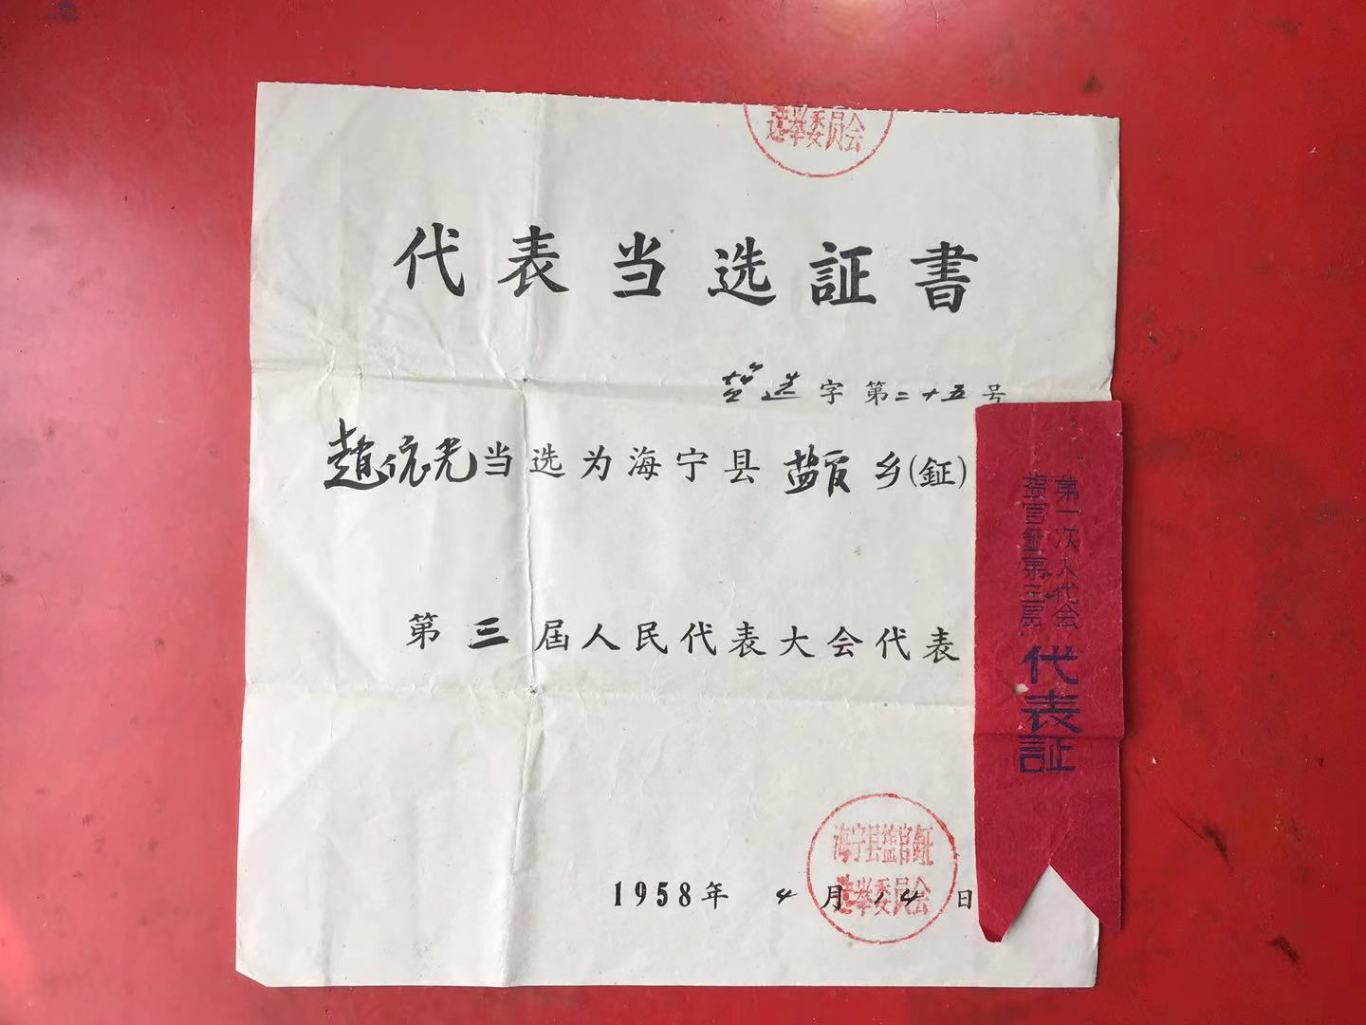 选举委员会
代表当选証書
盐选字第二十五号
趙依光当选为海宁县盐官乡(鉦)
第三屆人民代表大会代表
1958年4月14日
海宁县盐官鉦
选举委员会
盐官鉦第三屆
第一次人代会
代表証